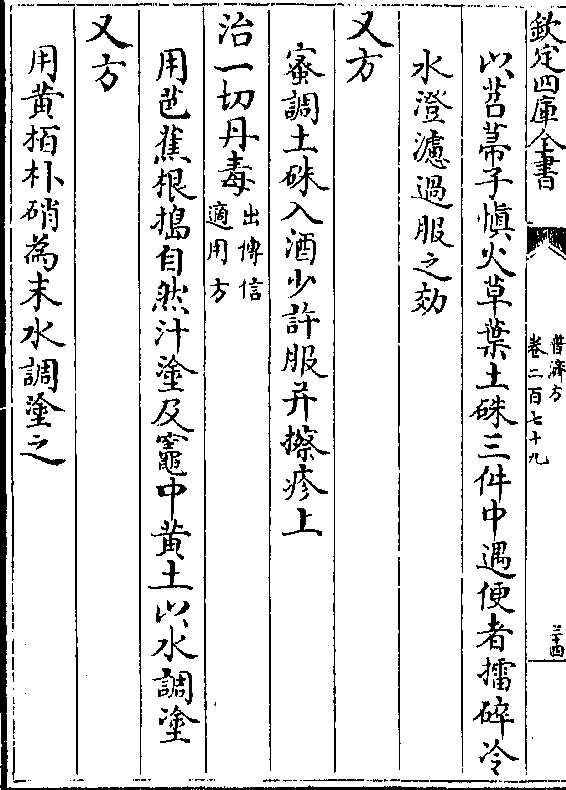 欽定四庫全書
普濟方
卷二百七十九
三十四
以苕帚子慎火草葉土硃三件中遇便者擂碎冷
水澄濾過服之効
又方
蜜調土硃入酒少許服并擦疹上
治一切丹毒出傳信
適用方
用芭蕉根搗自然汁塗及竈中黄土以水調塗
又方
用黄栢朴硝為末水調塗之